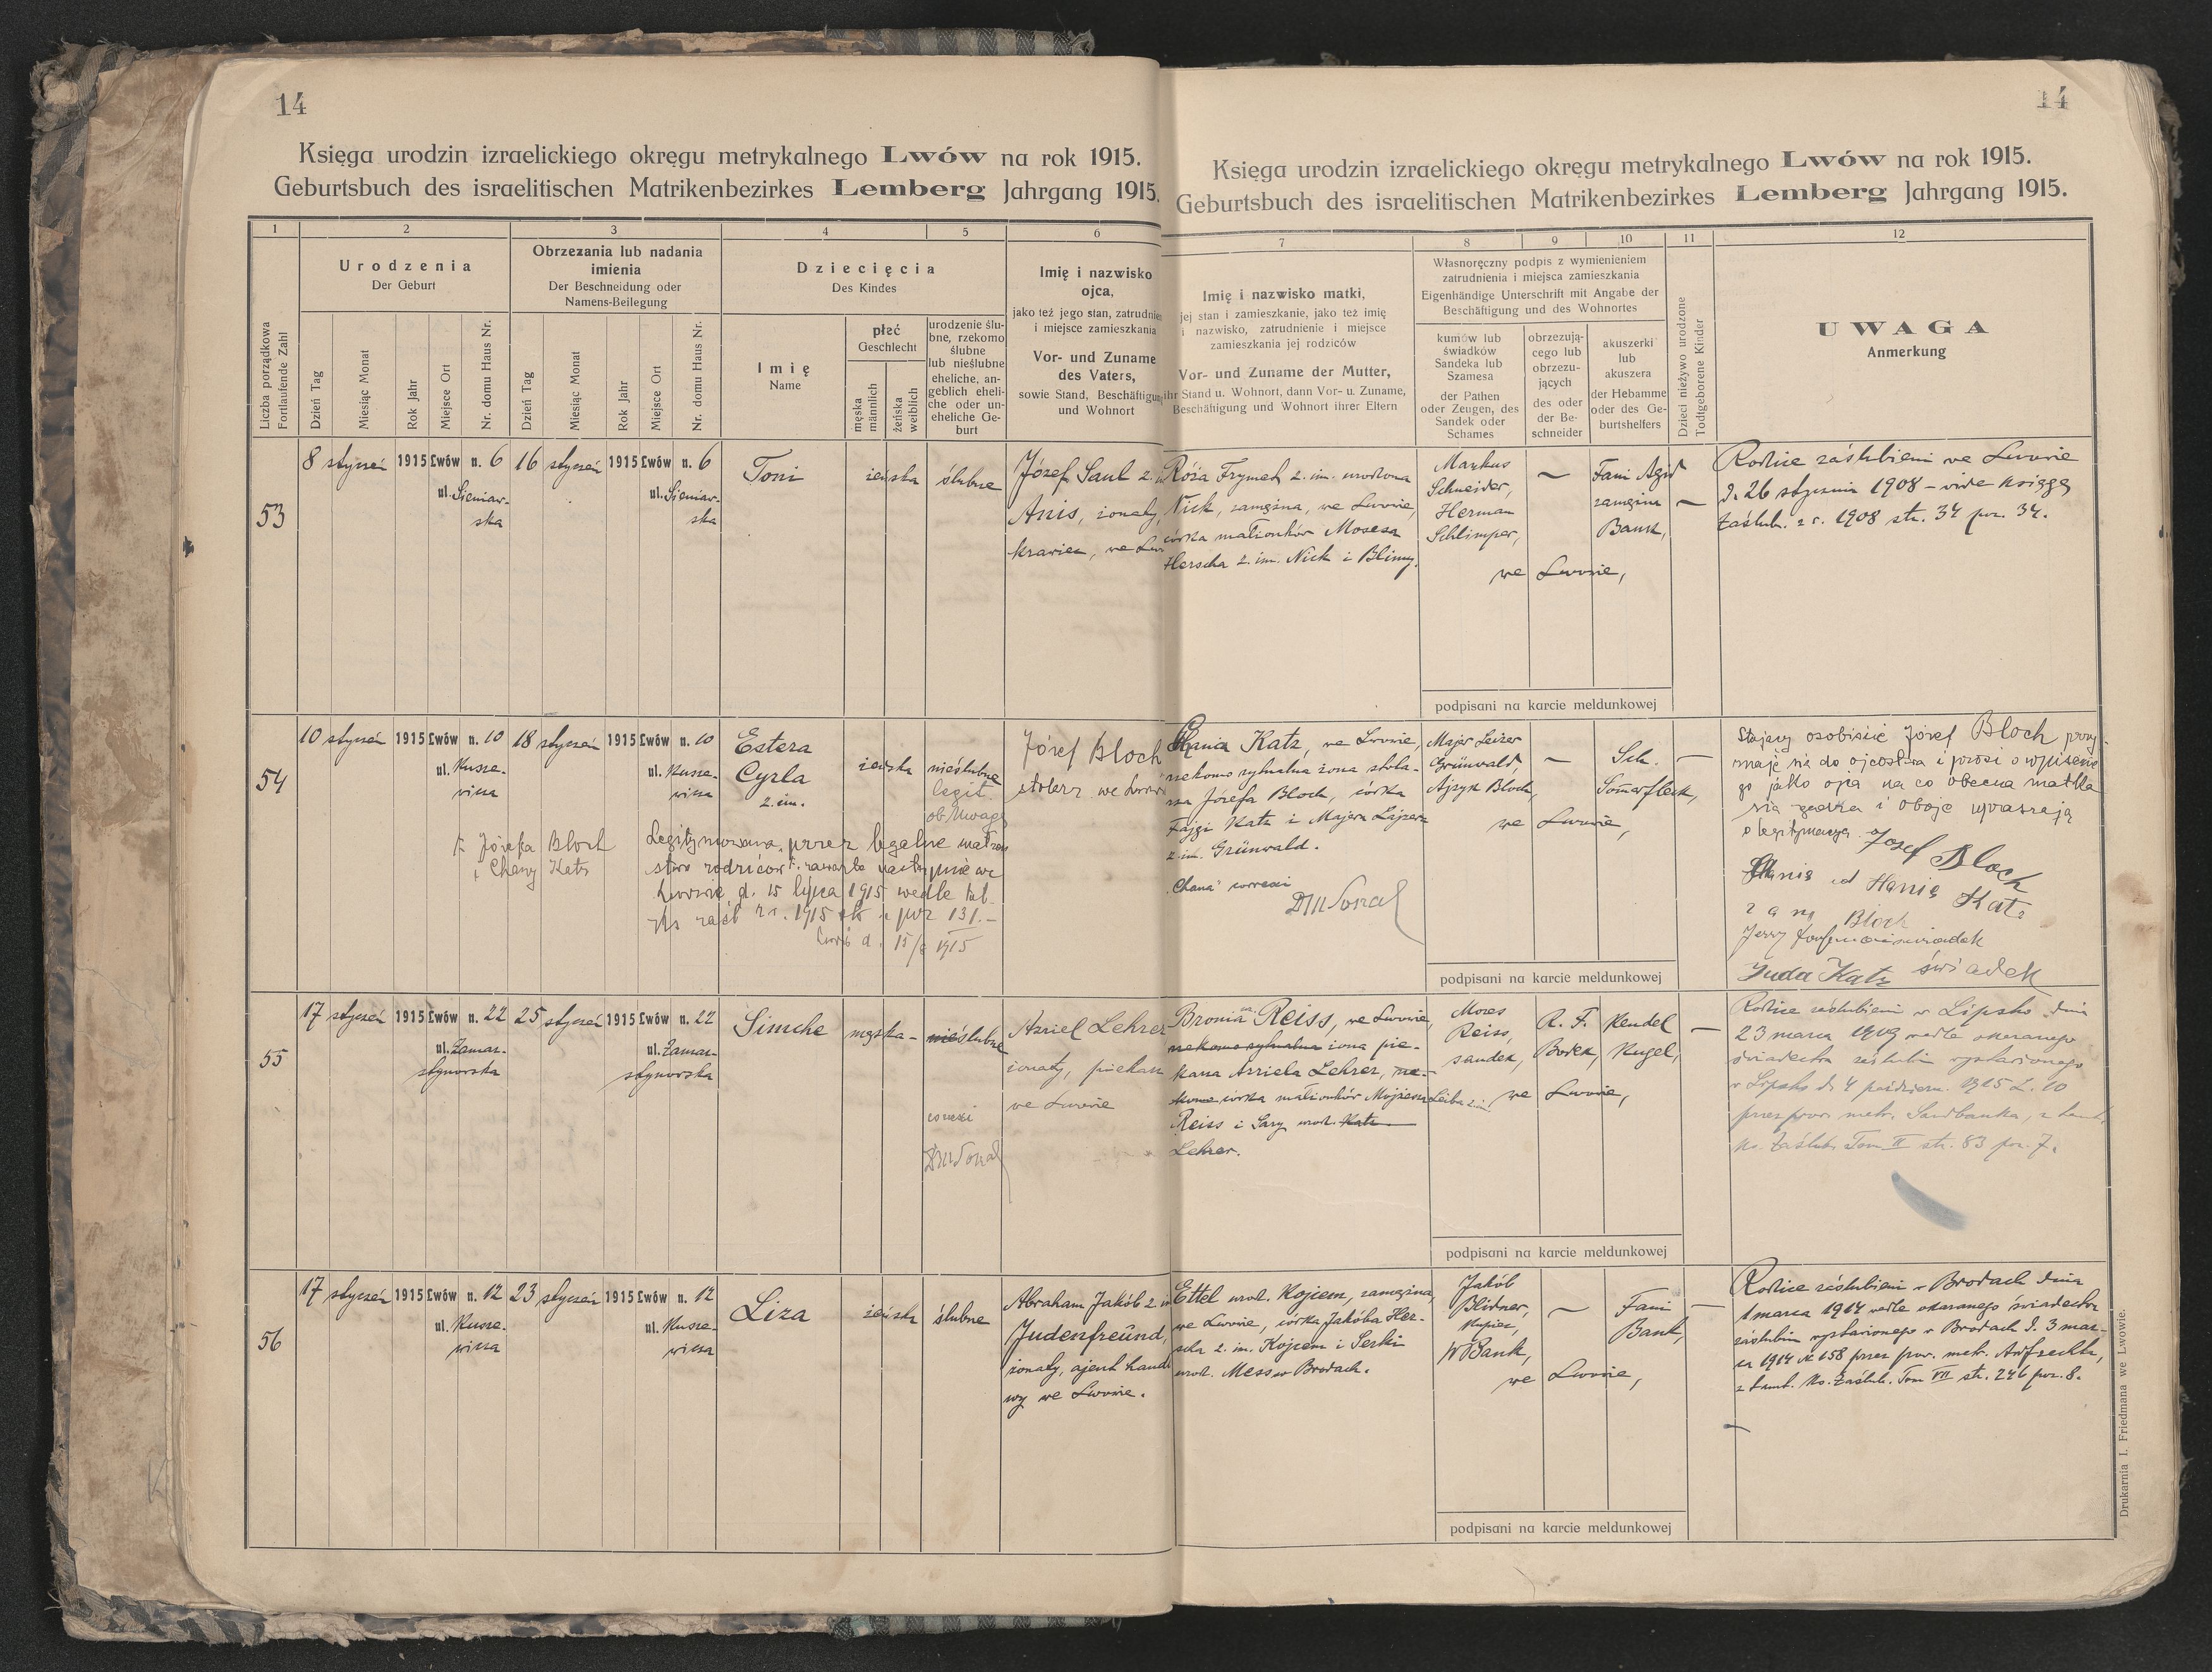 14
Księga urodzin izraelickiego okręgu metrykalnego Lwów na rok 1915.
Geburtsbuch des israelitischen Matrikenbezirkes Lemberg Jahrgang 1915.
1 2 3 4 5 6
Liczba porządkowa
Fortlaufende Zahl
Urodzenia
Der Geburt
Dzień Tag
Miesiąc Monat
Rok Jahr
Miejsce Ort
Nr. domu Haus Nr.
Obrzezania lub nadania
imienia
Der Beschneidung oder
Namens-Beilegung
Dzień Tag
Miesiąc Monat
Rok Jahr
Miejsce Ort
Nr. domu Haus Nr.
Dziecięcia
Des Kindes
Imię
Name
płeć
Geschlecht
męska
männlich
żeńska
weiblich
urodzenie ślu-
bne, rzekomo
ślubne
lub nieślubne
eheliche, an-
geblich eheli-
che oder un-
eheliche Ge-
burt
Imię i nazwisko
ojca,
jako też jego stan, zatrudnie
i miejsce zamieszkania
Vor- und Zuname
des Vaters,
sowie Stand, Beschäftigung
und Wohnort
53
8 styczeń 1915 Lwów n. 6
ul. Sieniaw-
ska
16 styczeń 1915 Lwów n. 6
ul. Sieniaw-
ska
Toni
żeńska
ślubne
Józef Saul 2.
Anis, żonaty,
krawiec, we Lw
54
10 styczeń 1915 Lwów n. 10
ul. Kusze-
wicza
18 styczeń 1915 Lwów n. 10
ul. Kusze-
wicza
Estera
Cyrla
2. im.
żeńska
nieślubne
legit.
ob. Uwaga
Józef Bloch
stolarz we Lwowie
Józefa Bloch
i Chany Katz
Legitymowana przez legalne małżeń
stwo rodziców zawarte następnie we
Lwowie d. 15 lipca 1915 wedle
1915 poz 131.-
Lwów d. 15/ 1915
55
17 styczeń 1915 Lwów n. 22
ul. Zamar-
stynowska
25 styczeń 1915 Lwów n. 22
ul. Zamar-
stynowska
Simche
męska -
nieślubne
correxi
Azriel Lehrer
żonaty, piekarz
we Lwowie
56
17 styczeń 1915 Lwów n. 12
ul. Kusze-
wicza
23 styczeń 1915 Lwów n. 12
ul. Kusze-
wicza
Liza
żeńska
ślubne
Abraham Jakób 2. im
Judenfreund,
żonaty, ajent handl
wy we Lwowie.
14
Księga urodzin izraelickiego okręgu metrykalnego Lwów na rok 1915.
Geburtsbuch des israelitischen Matrikenbezirkes Lemberg Jahrgang 1915.
7 8 9 10 11 12
Imię i nazwisko matki,
jej stan i zamieszkanie, jako też imię
i nazwisko, zatrudnienie i miejsce
zamieszkania jej rodziców
Vor- und Zuname der Mutter,
ihr Stand u. Wohnort, dann Vor- u. Zuname,
Beschäftigung und Wohnort ihrer Eltern
Własnoręczny podpis z wymienieniem
zatrudnienia i miejsca zamieszkania
Eigenhändige Unterschrift mit Angabe der
Beschäftigung und des Wohnortes
kumów lub
świadków
Sandeka lub
Szamesa
der Pathen
oder Zeugen, des
Sandek oder
Schames
obrzezują-
cego lub
obrzezu-
jących
des oder
der Be-
schneider
akuszerki
lub
akuszera
der Hebamme
oder des Ge-
burtshelfers
Dzieci nieżywo urodzone
Todtgeborene Kinder
UWAGA
Anmerkung
Róża Frymet 2. im. urodzona
Nick, zamężna, we Lwowie,
córka małżonków Mosesa
Herscha 2. im. Nick i Blimy.
Markus
Schneider,
Herman
Schlimper,
Fani Agid
zamężna
Bank,
we Lwowie,
podpisani na karcie meldunkowej
Rodzice zaślubieni we Lwowie
d. 26 stycznia 1908 - vide księgę
zaślub. z r. 1908 str. 34 poz. 34.
Chania Katz, we Lwowie,
rzekomo rytualna żona stola-
rza Józefa Bloch, córka
Fajgi Katz i Majera Lajzera
2. im. Grünwald.
"Chana" correxi
Majer Leizer
Grünwald,
Ajzyk Bloch,
Sch.
we Lwowie,
podpisani na karcie meldunkowej
Stający osobiście Józef Bloch przy-
znaje się do ojcostwa i prosi o wpisanie
go jako ojca na co obecna matka
się zgadza i oboje upraszają
o legitymacyę. Josef Bloch
Hanie Katz
Bloch
Juda Katz świadek
Bronia Reiss, we Lwowie,
rzekomo rytualna żona pie-
karza Azriela Lehrer, rze-
komo córka małżonków Mojżesza Leiba 2 im.
Reiss i Sary urodz. Katz
Lehrer.
Mozes
Reiss,
sandek,
R. F.
Borek,
Hendel
Kugel,
we Lwowie,
podpisani na karcie meldunkowej
Rodzice zaślubieni w Lipsko dnia
23 marca 1909 wedle okazanego
świadectwa zaślubin wystawionego
w Lipsko d. 4 październ. 1915 L. 10
przez prow. metr. Sandbanka, z tamt.
ks. zaślub. Tom II str. 83 poz. 7.
Ettel urodz. Kojiem, zamężna,
we Lwowie, córka Jakóba Her-
scha 2. im. Kojiem i Serki
urodz. Mess w Brodach.
Jakób
Blidner,
kupiec,
W Bank,
Fani
Bank,
we Lwowie,
podpisani na karcie meldunkowej
Rodzice zaślubieni w Brodach dnia
1 marca 1914 wedle okazanego świadectwa
zaślubin wystawionego w Brodach d. 3 mar-
ca 1914 № 158 przez prow. metr.
z tamt. ks. zaślub. Tom VII str. 246 poz. 8.
Drukarnia I. Friedmana we Lwowie.